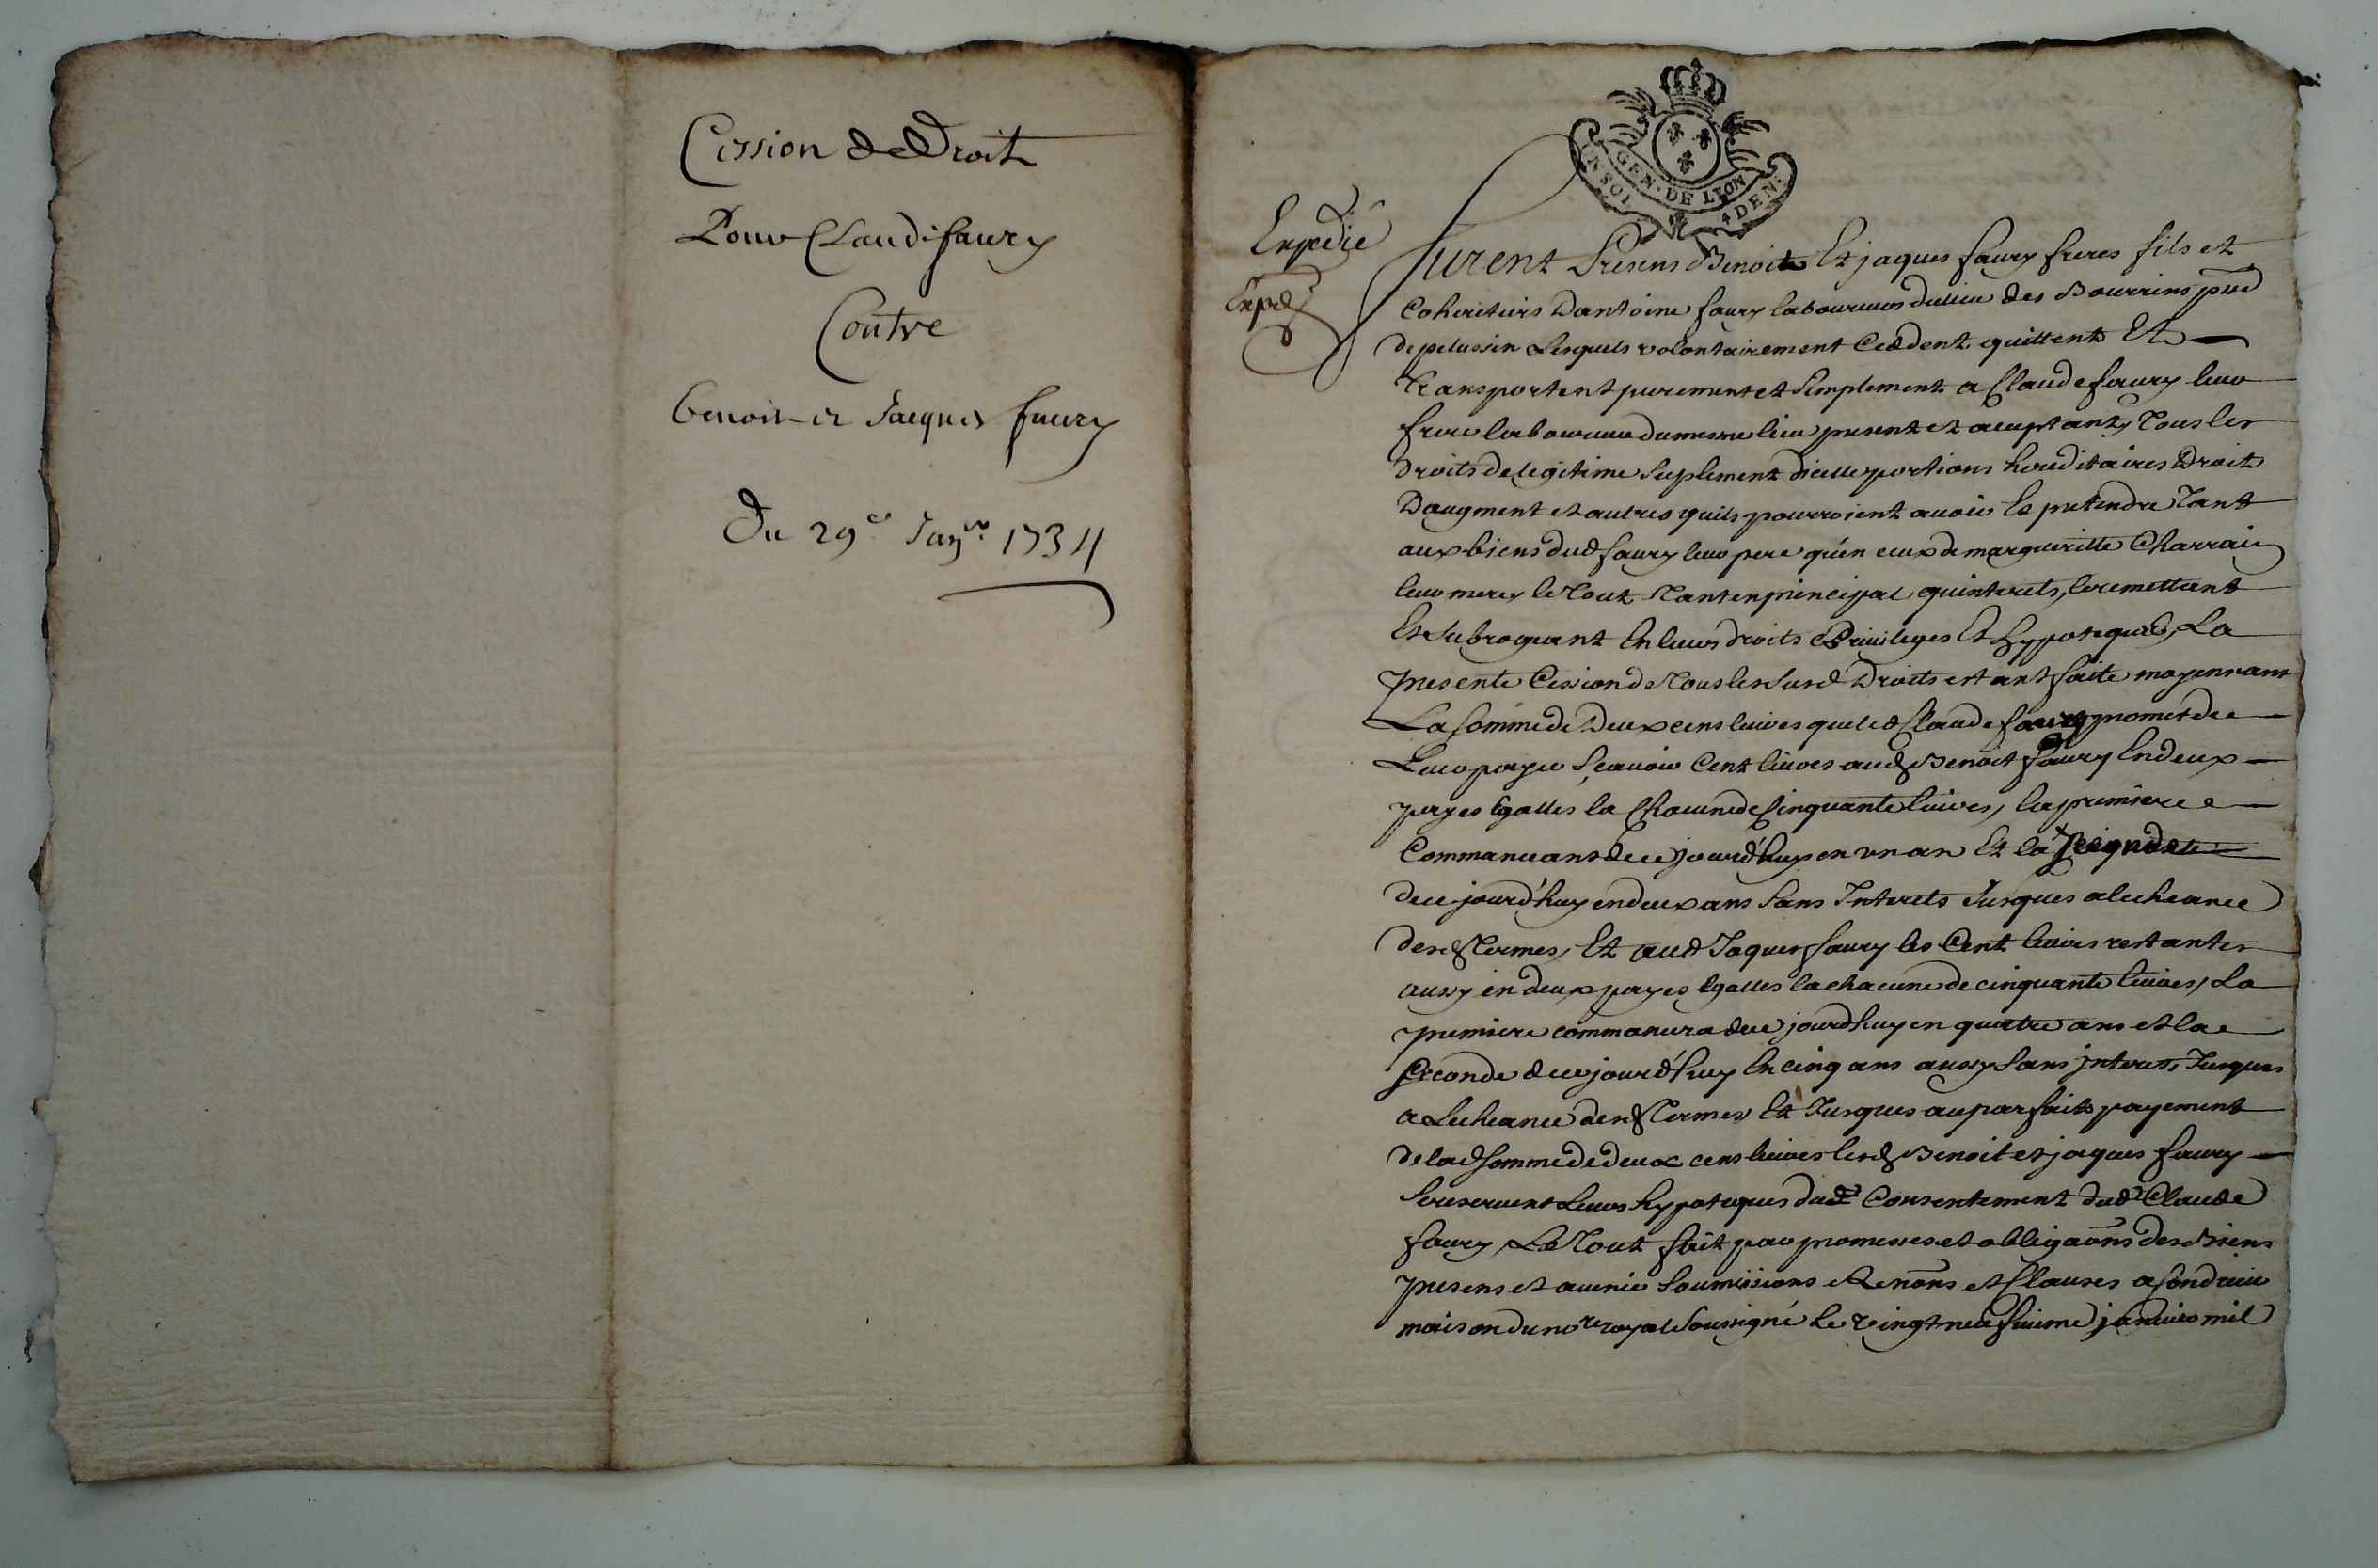 Cession de Droit
Pour Claude faury
Contre
benoit et Jacques faury
Du 29e Janvr 1734
GEN. DE LYON
4 DEN.
Expedié
Expdé
Furent Presens Benoit Et jaques faury freres fils et
Coheritiers Dantoine faury laboureurs du lieu des Bourrins
de pelussin Lesquels volontairement Ceddent quittent Et
Transportent purement et Simplement a Claude faury leur
frere laboureur du mesme lieu present et aceptant, Tous les
Droits de legitime Suplement dicelle portions hereditaires Droit
Daugment et autres quils pourroient avoir Et pretendre Tant
aux biens dud faury leur pere qu'en ceux de margueritte Charrain
leur mere, le Tout Tant en principal quinterets, le remettant
Et Subrogeant En leurs droits Privileges Et hypoteques, La
presente Cession de Tous les Susd Droits estant faite moyennant
La Somme de Deux cens livres que led Claude faury promet de
Leur payer Sçavoir Cent livres aud Benoit faury En deux
payes Egalles la Chacune de Cinquante livres, la premiere
Commancant de ce jourd'huy en un an Et la
de ce jourd'huy en deux ans Sans Interets Jusques a lecheance
desd Termes, Et aud Jaques faury les Cent livres restantes
aussy en deux payes Egalles la chacune de cinquante livres, La
premiere commancera de ce jourdhuy en quatre ans et la
Seconde de ce jourd'huy En cinq ans aussy Sans jnterets, Jusques
a Lecheance desd Termes Et Jusques au parfait payement
de lad Somme de deux cens livres lesd Benoit et jaques faury
Se reservent Leurs hypoteques du Consentement dud Claude
faury, Le Tout fait par promesses et obligaons des Biens
presens et avenir Soumissions Renons et Clauses a Condrieu
maison du nore royal Soussigné le vingt neufvieme janvier mil